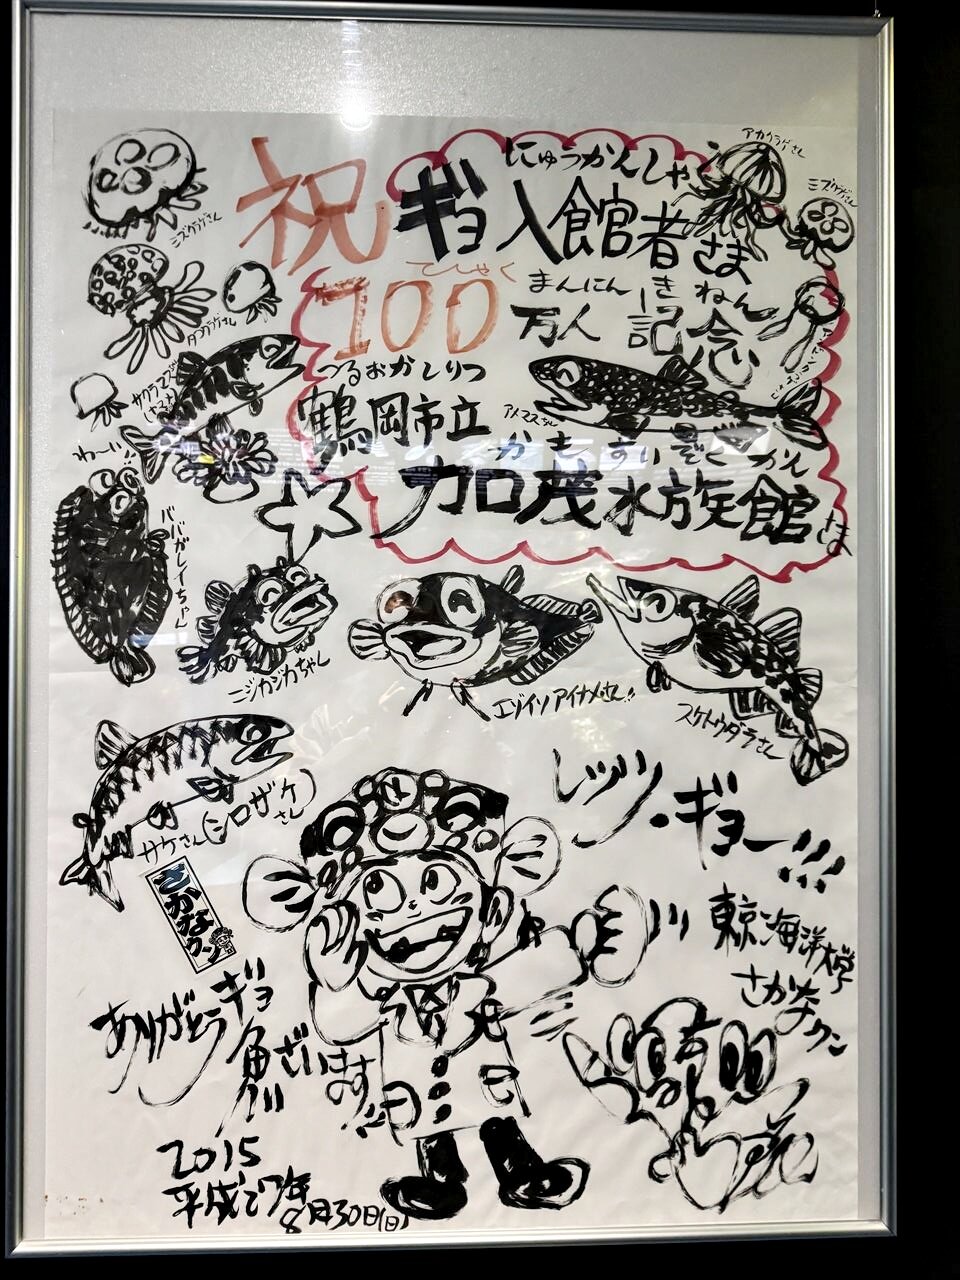 アカクラゲさん
ミズクラゲさん
ミズクラゲさん
にゅうかんしゃ
祝 ギョ入館者さま
てしゃく
まんにん きねん
100万人 記念
タコクラゲさん
つるおかしりつ
鶴岡市立
アメマスちゃん
かもすいぞくかん
加茂水族館さま
サクラマス
わーい!!
ババガレイちゃん
ニジカジカちゃん
エゾイソアイナメさん!!
スケトウダラさん
サケさん(シロザケさん)
レッツ・ギョー!!!
さかなクン
東京海洋大学
さかなクン
ありがとうギョ
魚ざいます!!
2015
平成27年
8月30日(日)